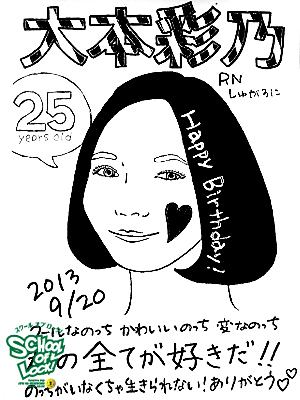 大本彩乃
RN
しゅがろに
25
years old
Happy Birthday!
2013
9/20
クールなのっち かわいいのっち 変なのっち
の全てが好きだ!!
のっちがいなくちゃ生きられない!ありがとう♡♡
スクール オブ ロック!
SCHOOL
OF
LOCK!